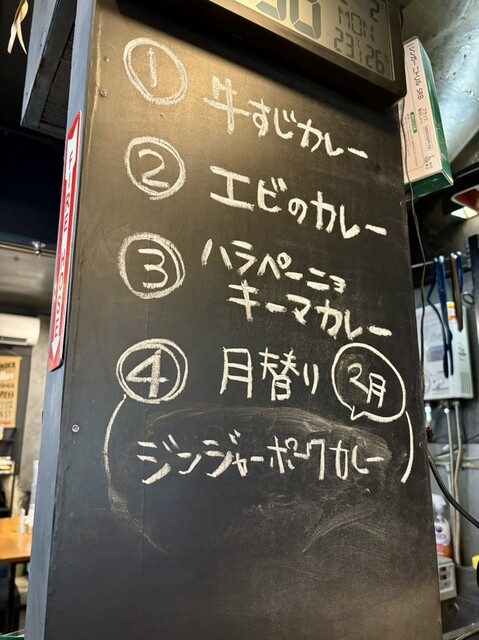 MON
① 牛すじカレー
② エビのカレー
③ ハラペーニョ
キーマカレー
④ 月替り 2月
(ジンジャーポークカレー)